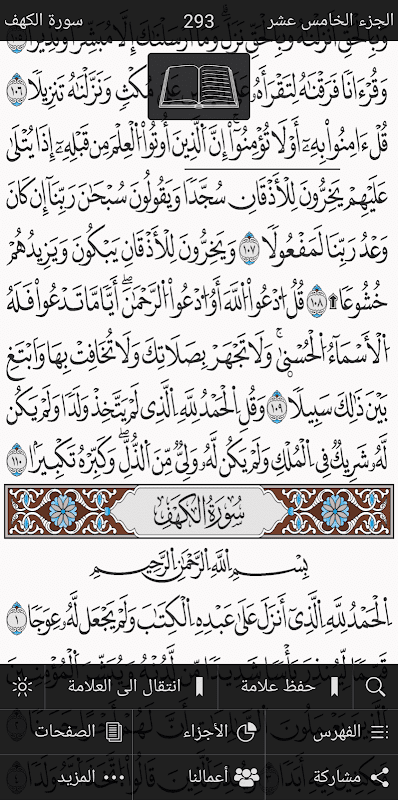 الجزء الخامس عشر 293 سورة الكهف
وَقُرْءَانًا فَرَقْنَٰهُ لِتَقْرَأَهُۥ مُكْثٍ وَنَزَّلْنَٰهُ تَنزِيلًا ١٠٦
قُلْ ءَامِنُوا۟ بِهِۦٓ أَوْ لَا تُؤْمِنُوٓا۟ إِنَّ ٱلَّذِينَ أُوتُوا۟ ٱلْعِلْمَ مِن قَبْلِهِۦٓ إِذَا يُتْلَىٰ
عَلَيْهِمْ يَخِرُّونَ لِلْأَذْقَانِ سُجَّدًا وَيَقُولُونَ سُبْحَٰنَ رَبِّنَآ إِن كَانَ
وَعْدُ رَبِّنَا لَمَفْعُولًا ١٠٧ وَيَخِرُّونَ لِلْأَذْقَانِ يَبْكُونَ وَيَزِيدُهُمْ
خُشُوعًا ۩ ١٠٨ قُلِ ٱدْعُوا۟ ٱللَّهَ أَوِ ٱدْعُوا۟ ٱلرَّحْمَٰنَ ۖ أَيًّا مَّا تَدْعُوا۟ فَلَهُ
ٱلْأَسْمَآءُ ٱلْحُسْنَىٰ ۚ وَلَا تَجْهَرْ بِصَلَاتِكَ وَلَا تُخَافِتْ بِهَا وَٱبْتَغِ
بَيْنَ ذَٰلِكَ سَبِيلًا ١٠٩ وَقُلِ ٱلْحَمْدُ لِلَّهِ ٱلَّذِى لَمْ يَتَّخِذْ وَلَدًا وَلَمْ يَكُن
لَّهُۥ شَرِيكٌ فِى ٱلْمُلْكِ وَلَمْ يَكُن لَّهُۥ وَلِىٌّ مِّنَ ٱلذُّلِّ ۖ وَكَبِّرْهُ تَكْبِيرًۢا ١١٠
سُورَةُ الكَهْفِ
بِسْمِ ٱللَّهِ ٱلرَّحْمَٰنِ ٱلرَّحِيمِ
ٱلْحَمْدُ لِلَّهِ ٱلَّذِىٓ أَنزَلَ عَلَىٰ عَبْدِهِ ٱلْكِتَٰبَ وَلَمْ يَجْعَل لَّهُۥ عِوَجَا ١
حفظ علامة انتقال الى العلامة
الفهرس الأجزاء الصفحات
مشاركة أعمالنا المزيد